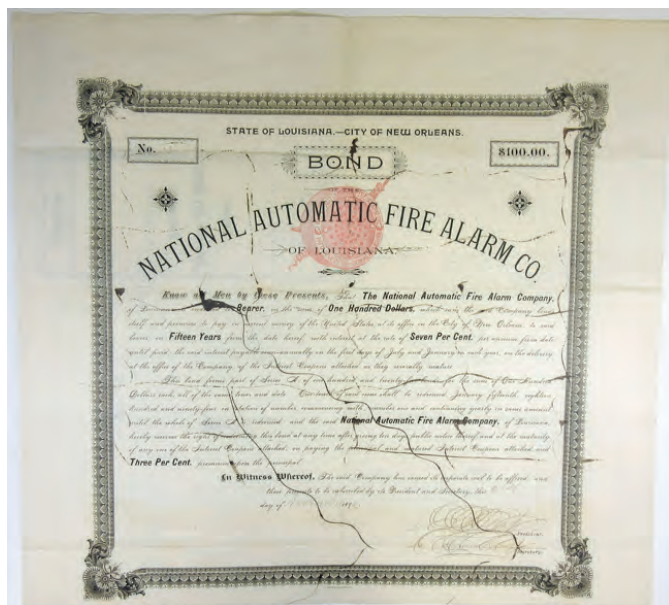 STATE OF LOUISIANA.—CITY OF NEW ORLEANS.
No.
$100.00.
BOND
OF THE
NATIONAL AUTOMATIC FIRE ALARM CO.
OF LOUISIANA.
Know all Men by these Presents, The National Automatic Fire Alarm Company,
of Louisiana Bearer, in the sum of One Hundred Dollars, which sum the said Company
shall and promises to pay in current money of the United States, at its office in the City of New Orleans, to said
bearer in Fifteen Years from the date hereof with interest at the rate of Seven Per Cent. per annum from date
until paid, the said interest payable semi-annually on the first days of July and January in each year, on the delivery
at the office of the Company, of the Interest Coupons attached as they severally mature
This bond forms part of Series A of one hundred and twenty for the sum of One Hundred
Dollars each, all of the same form and date. Company shall redeem January fifteenth, eighteen
hundred and ninety-four in rotation of number commencing with number one and continuing yearly in same amount
until the whole of Series A is redeemed and the said National Automatic Fire Alarm Company, of Louisiana,
hereby reserves the right of this bond at any time after giving ten days public notice thereof, and at the maturity
of any one of the Interest Coupons attached, on paying the principal and matured Interest Coupon attached and
Three Per Cent. premium upon the principal.
In Witness Whereof, The said Company has caused its corporate seal to be affixed, and
these presents to be subscribed by its President and Secretary, this
day of 189
PRESIDENT.
SECRETARY.